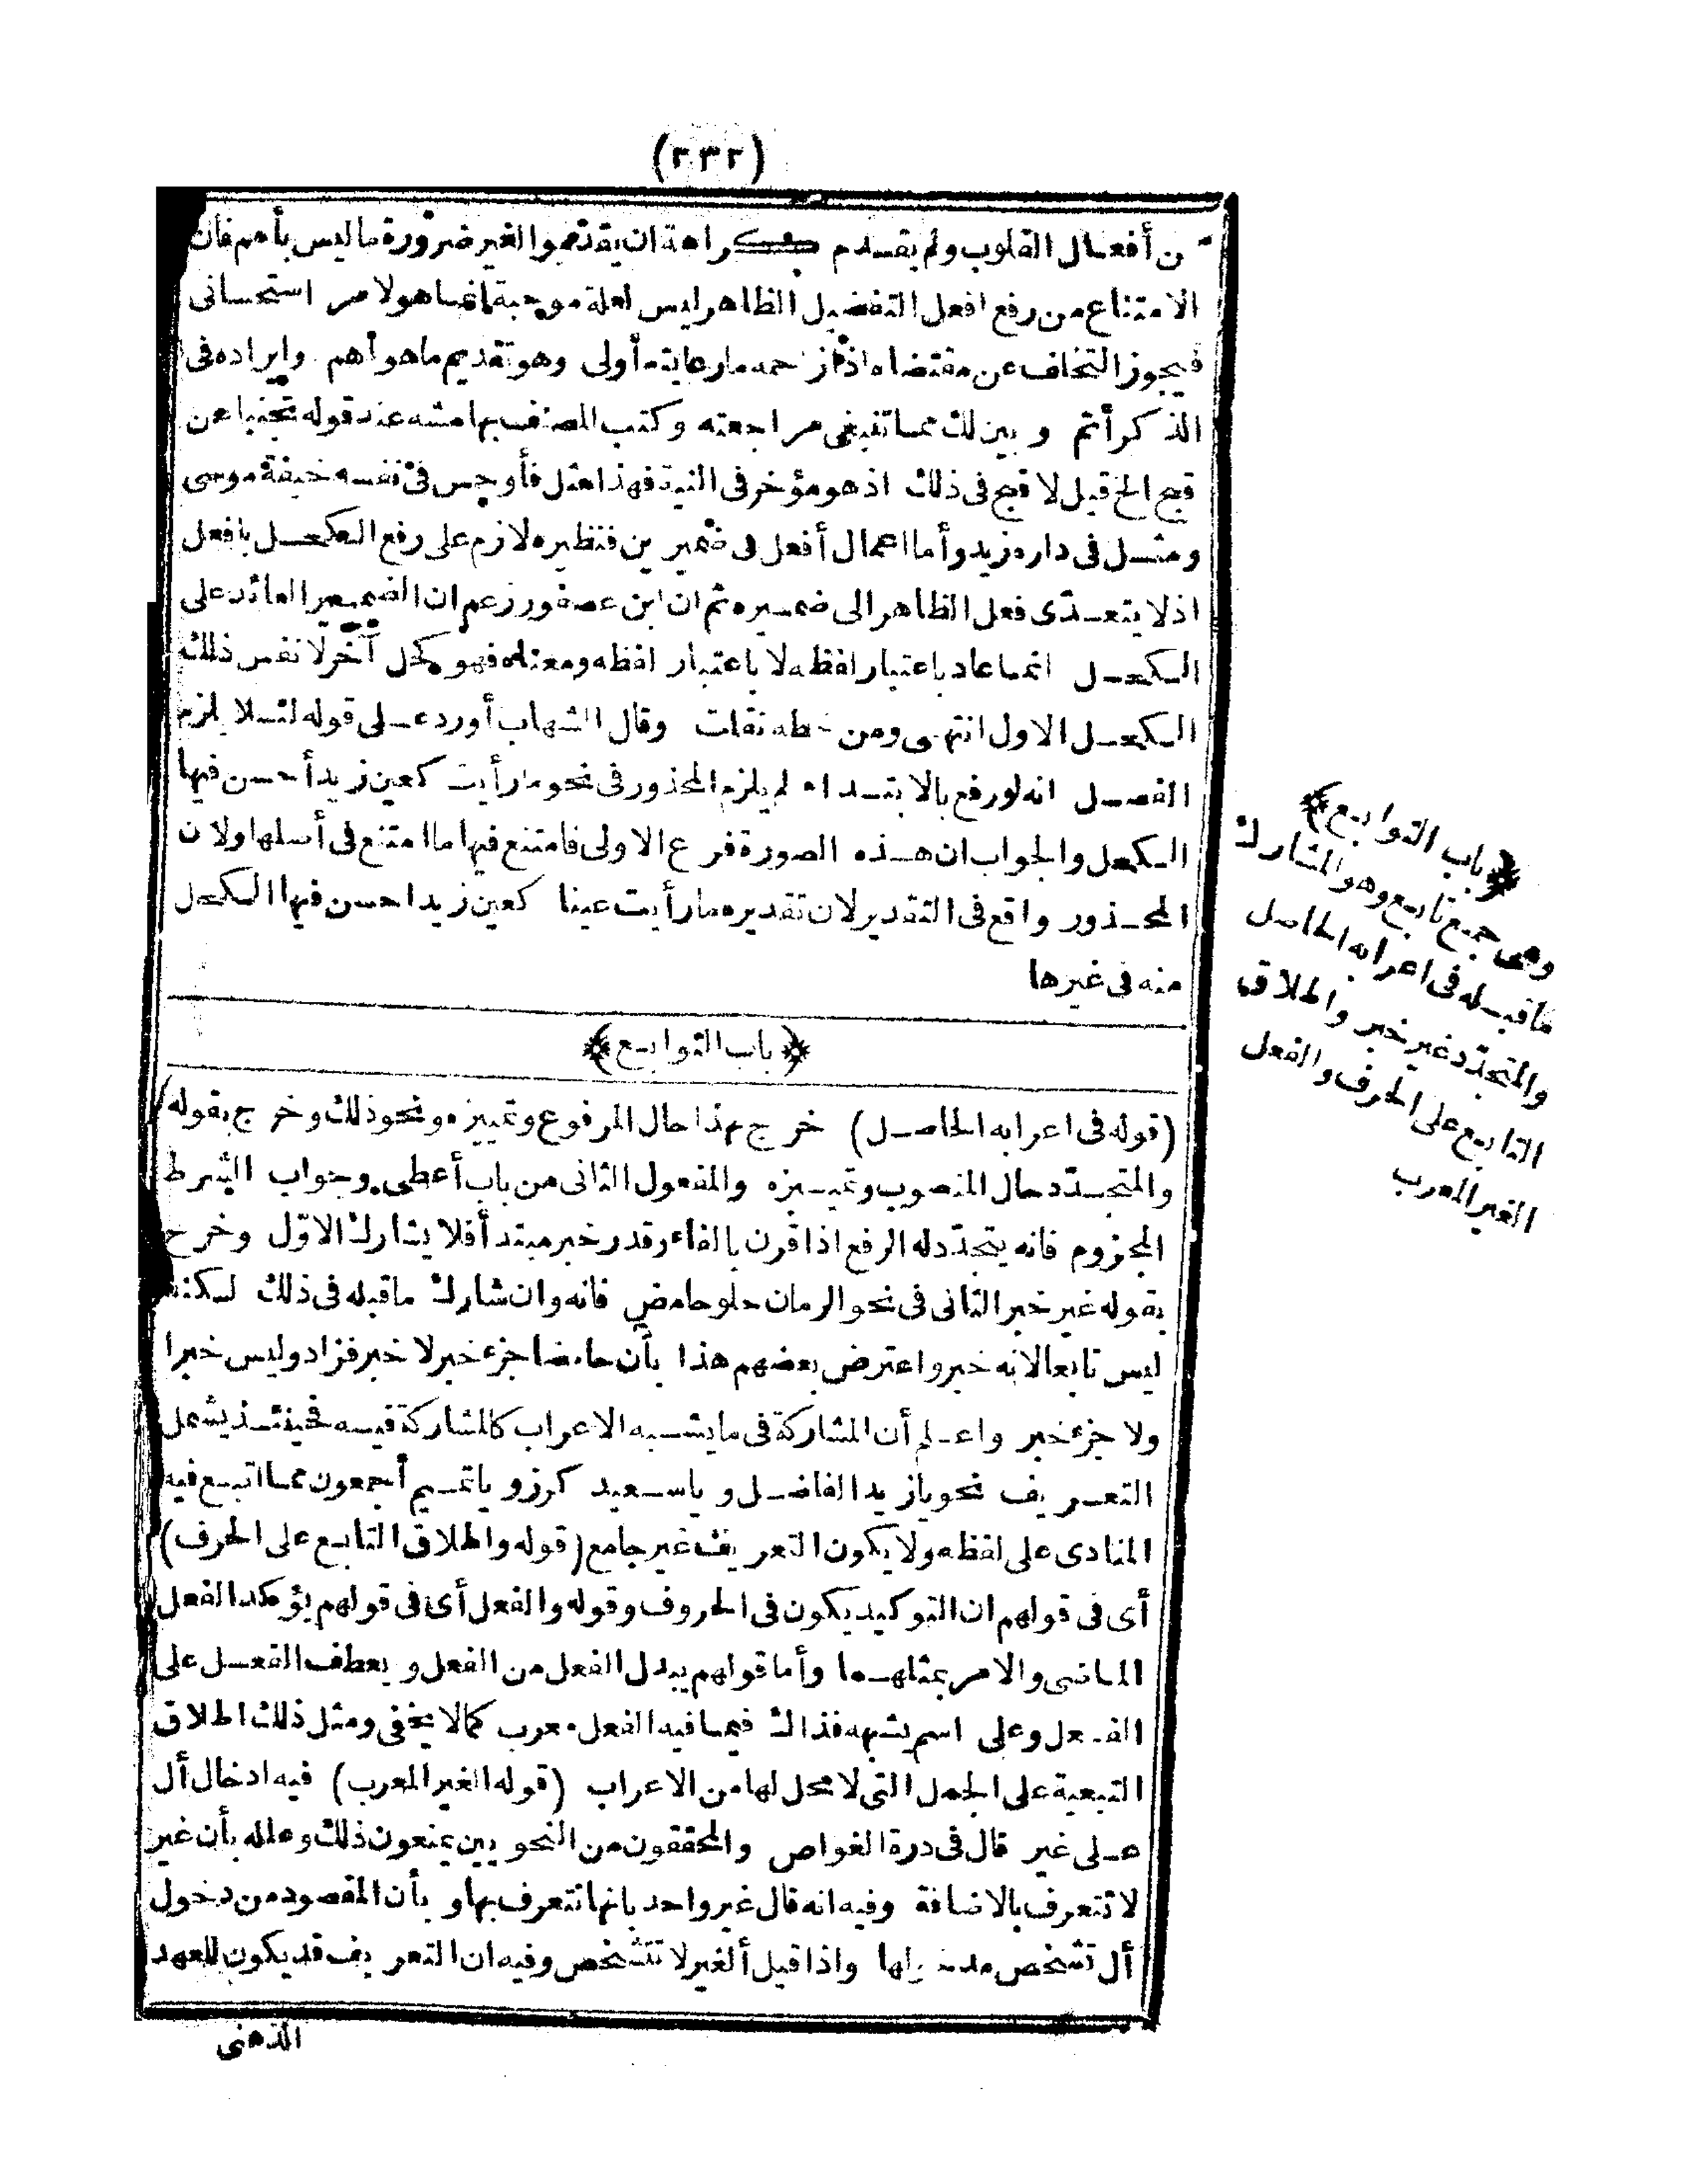 (٢٣٢)
من أفعال القلوب ولم يقدم كراهة ان يقدموا لغير ضرورة ما ليس بأهم فان
الامتناع من رفع افعل التفضيل الظاهر ليس لعلة موجبة انما هو لامر استحسانى
فيجوز التخلف عن مقتضاه اذا زاحمه ما رعايته أولى وهو تقديم ما هو أهم وايراده فى
الذكر أتم وبين لك مما تنبغى مراجعته وكتب المصنف بهامشه عند قوله تجنبا عن
قبح الخ قيل لا قبح فى ذلك اذ هو مؤخر فى النية فهذا مثل فأوجس فى نفسه خيفة موسى
ومثل فى داره زيد وأما اعمال أفعل فى ضميرين فنظيره لازم على رفع الكحل بافعل
اذ لا يتعدّى فعل الظاهر الى ضميره ثم ان ابن عصفور زعم ان الضمير العائد على
الكحل انما عاد باعتبار لفظه لا باعتبار لفظه ومعناه فهو كحل آخر لا نفس ذلك
الكحل الاول انتهى ومن خطه نقلت وقال الشهاب أورد على قوله لئلا يلزم
الفصل انه لو رفع بالابتداء لم يلزم المحذور فى نحو ما رأيت كعين زيد أحسن فيها
الكحل والجواب ان هذه الصورة فرع الاولى فامتنع فيها ما امتنع فى أصلها ولان
المحذور واقع فى التقدير لان تقديره ما رأيت عينا كعين زيد احسن فيها الكحل
منه فى غيرها
﴿باب التوابع﴾
(قوله فى اعرابه الحاصل) خرج بهذا حال المرفوع وتمييزه ونحو ذلك وخرج بقوله
والمتجدّد حال المنصوب وتمييزه والمفعول الثانى من باب أعطى وجواب الشرط
المجزوم فانه يتجدّد له الرفع اذا قرن بالفاء وقدر خبر مبتدأ فلا يشارك الاوّل وخرج
بقوله غير خبر الثانى فى نحو الرمان حلو حامض فانه وان شارك ما قبله فى ذلك لكنه
ليس تابعا لانه خبر واعترض بعضهم هذا بأن حامضا جزء خبر لا خبر فزاد وليس خبرا
ولا جزء خبر واعلم أن المشاركة فى ما يشبه الاعراب كالمشاركة فيه فحينئذ يشمل
التعريف نحو يا زيد الفاضل ويا سعيد كرز ويا تميم أجمعون مما اتبع فيه
المنادى على لفظه ولا يكون التعريف غير جامع (قوله واطلاق التابع على الحرف)
أى فى قولهم ان التوكيد يكون فى الحروف وقوله والفعل أى فى قولهم يؤكد الفعل
الماضى والامر بمثلهما وأما قولهم يبدل الفعل من الفعل ويعطف الفعل على
الفعل وعلى اسم يشبهه فذاك فيما فيه الفعل معرب كما لا يخفى ومثل ذلك اطلاق
التبعية على الجمل التى لا محل لها من الاعراب (قوله الغير المعرب) فيه ادخال أل
على غير قال فى درة الغواص والمحققون من النحويين يمنعون ذلك وعلله بأن غير
لا تتعرف بالاضافة وفيه انه قال غير واحد بانها تتعرف بها وبأن المقصود من دخول
أل تشخص مدخولها واذا قيل ألغير لا تتشخص وفيه ان التعريف قد يكون للعهد
الذهنى
﴿باب التوابع﴾
وهى جمع تابع وهو المشارك
ما قبله فى اعرابه الحاصل
والمتجدّد غير خبر واطلاق
التابع على الحرف والفعل
الغير المعرب